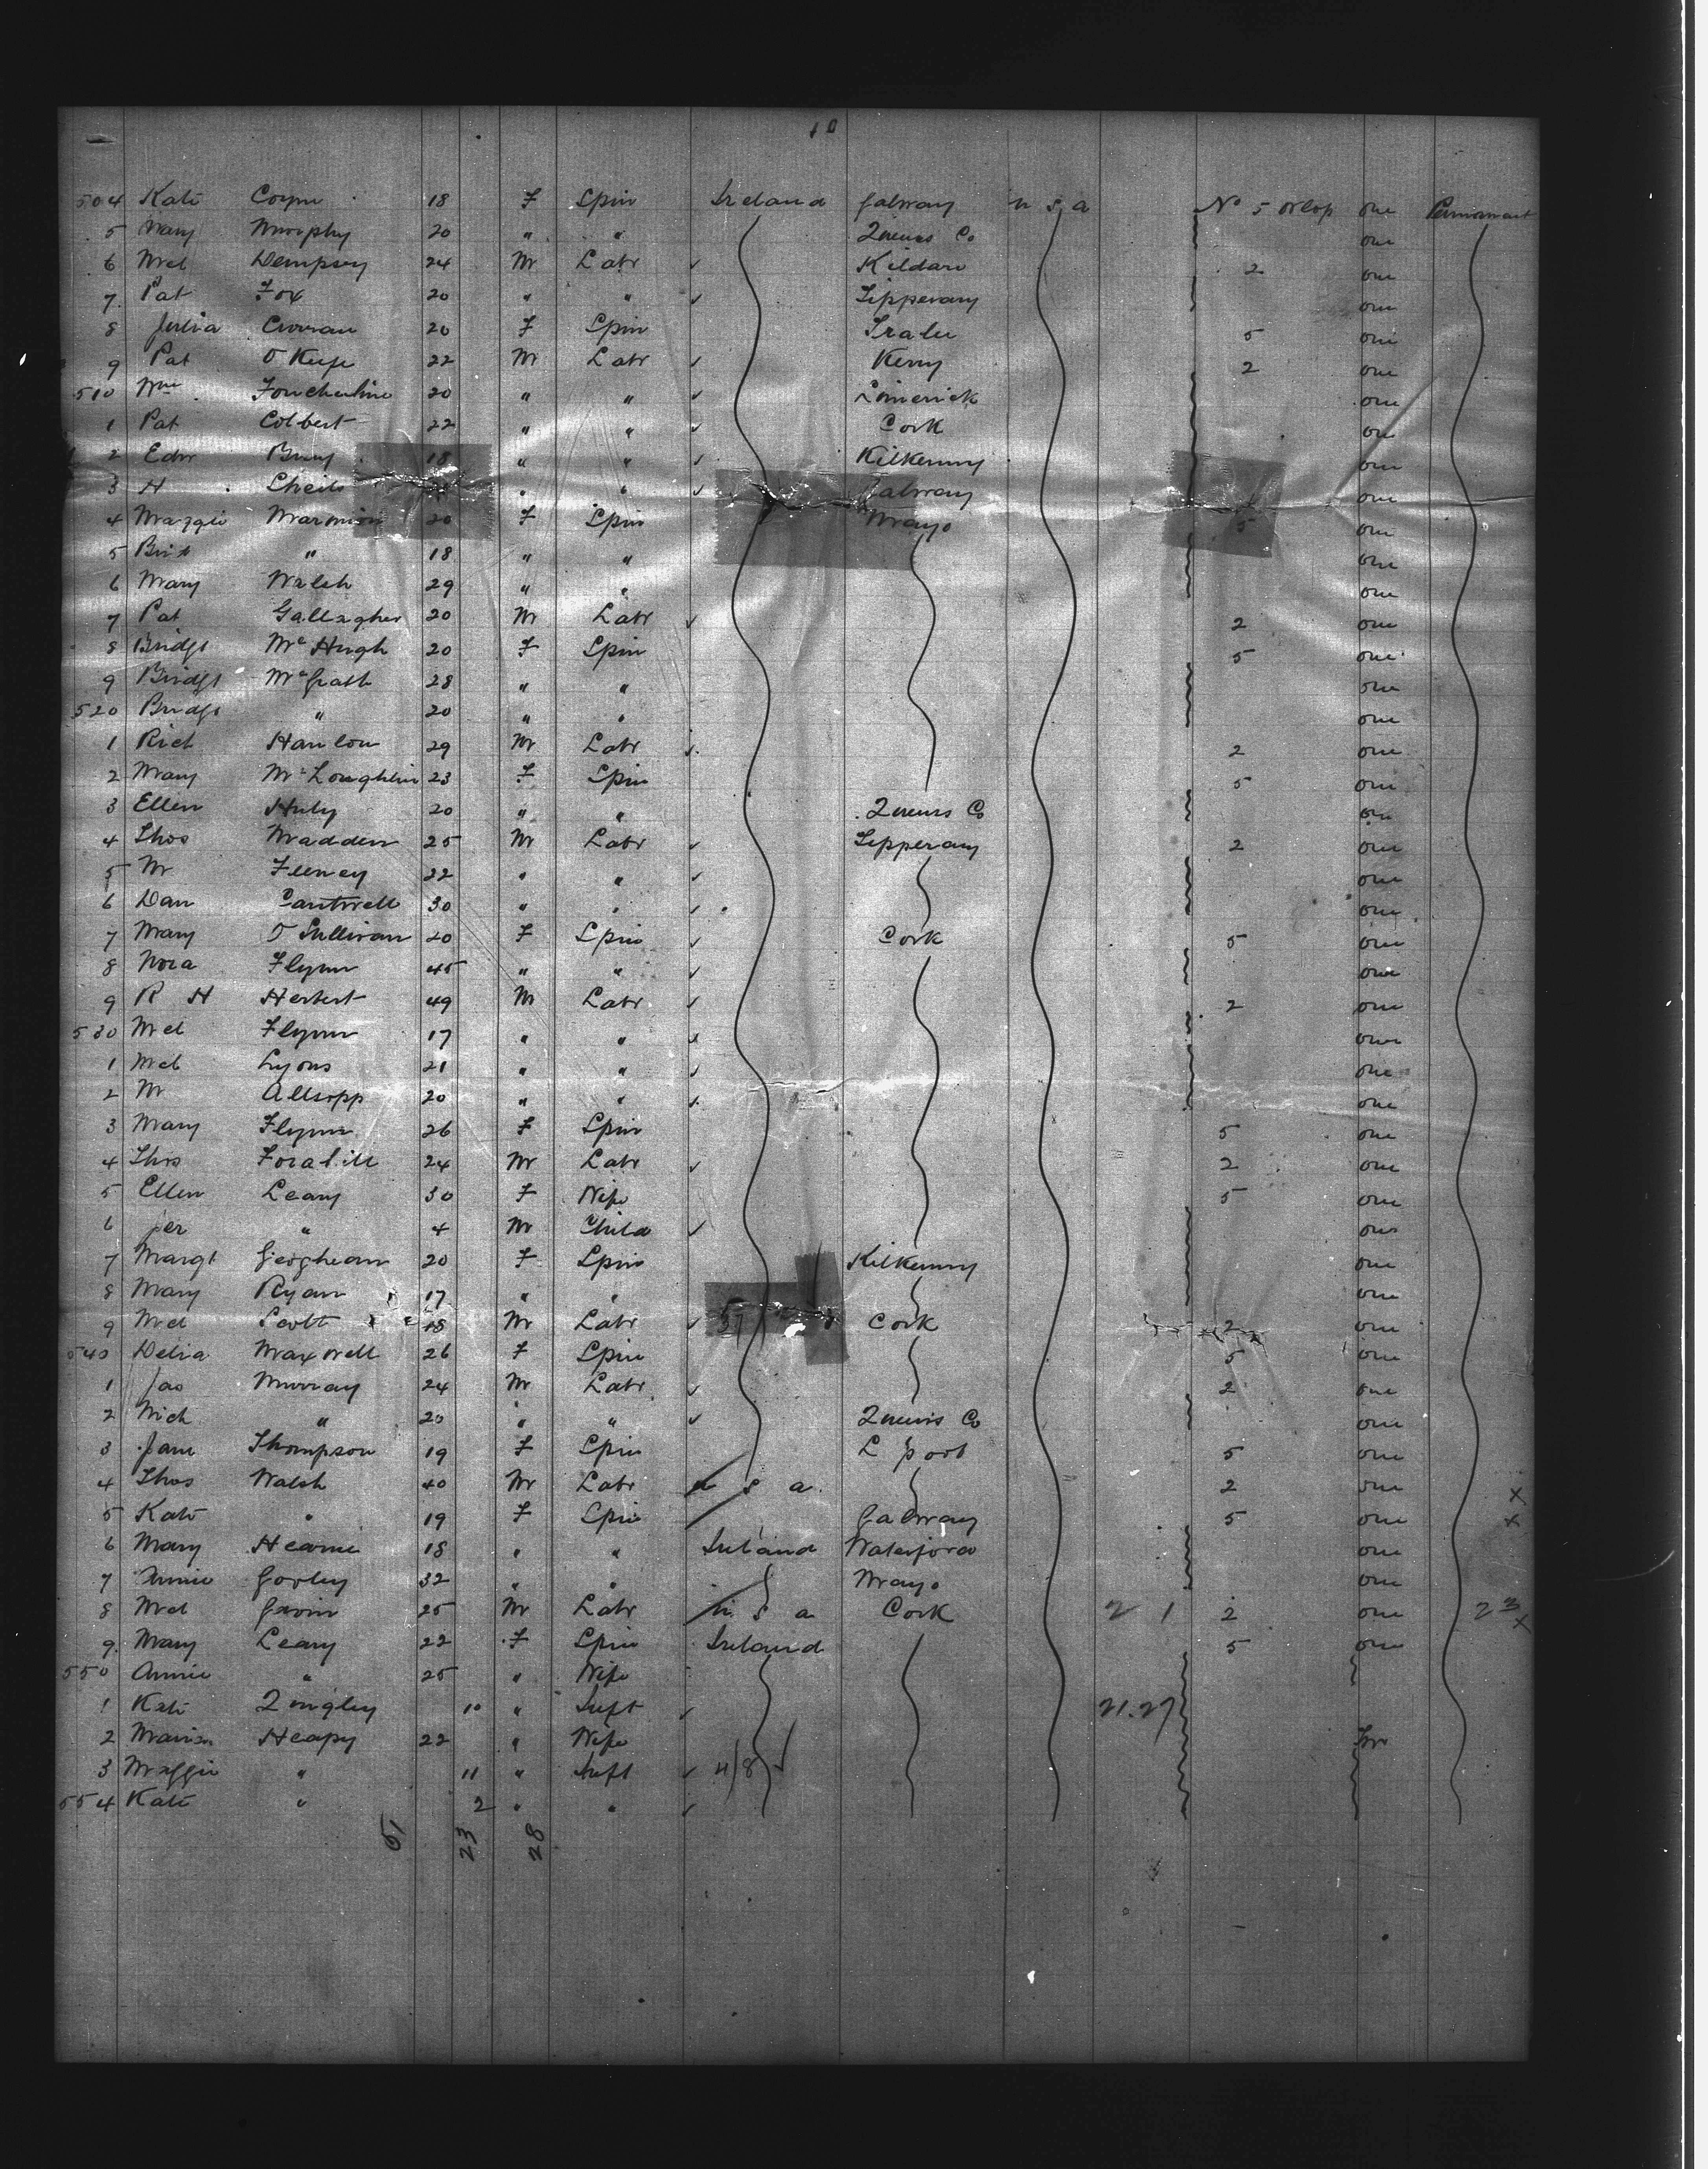 10
504 Kate Coyne 18 F Spin Ireland Galway U S A No 5 Orlop one Permanent
5 Mary Murphy 20 " " Queens Co one
6 Mcl Dempsey 24 M Labr Kildare 2 one
7 Pat Fox 20 " " Tipperary one
8 Julia Curran 20 F Spin Tralee 5 one
9 Pat O Keefe 22 M Labr Kerry 2 one
510 Wm 20 " " Limerick one
1 Pat Colbert 22 " " Cork one
2 Edw 18 " " Kilkenny one
3 H Sheils " " Galway one
4 Maggie Marmion 20 F Spin Mayo 5 one
5 Brid " 18 " " one
6 Mary Walsh 29 " " one
7 Pat Gallagher 20 M Labr 2 one
8 Bridgt McHugh 20 F Spin 5 one
9 Bridgt McGrath 28 " " one
520 Bridgt " 20 " " one
1 Rich Hanlon 29 M Labr 2 one
2 Mary McLoughlin 23 F Spin 5 one
3 Ellen 20 " " Queens Co one
4 Thos Madden 25 M Labr Tipperary 2 one
5 M Feeney 22 " " one
6 Dan Cantwell 30 " " one
7 Mary O Sullivan 20 F Spin Cork 5 one
8 Nora Flynn 45 " " one
9 R H Herbert 49 M Labr 2 one
530 Mcl Flynn 17 " " one
1 Mcl Lyons 21 " " one
2 M Allsopp 20 " " one
3 Mary Flynn 26 F Spin 5 one
4 Thos 24 M Labr 2 one
5 Ellen Leary 30 F Wife 5 one
6 Jer " 4 M Child one
7 Margt Geoghean 20 F Spin Kilkenny one
8 Mary Ryan 17 " " one
9 Mcl Scott 18 M Labr Cork 2 one
540 Delia Maxwell 26 F Spin 5 one
1 Jas Murray 24 M Labr 2 one
2 Mich " 20 " " Queens Co one
3 Jane Thompson 19 F Spin L'pool 5 one
4 Thos Walsh 40 M Labr U S A 2 one X
5 Kate " 19 F Spin Galway 5 one X
6 Mary Hearne 18 " " Ireland Waterford one
7 Annie 32 " " Mayo one
8 Mcl Gavin 25 M Labr U S A Cork 2 1 2 one 23 X
9 Mary Leary 22 F Spin Ireland 5 one
550 Annie " 25 " Wife
1 Kate Quigley 10 " Inft 21.27
2 Heapy 22 " Wife
3 Maggie " 11 " Inft 4/8
554 Kate " 2 " "
51 23 28